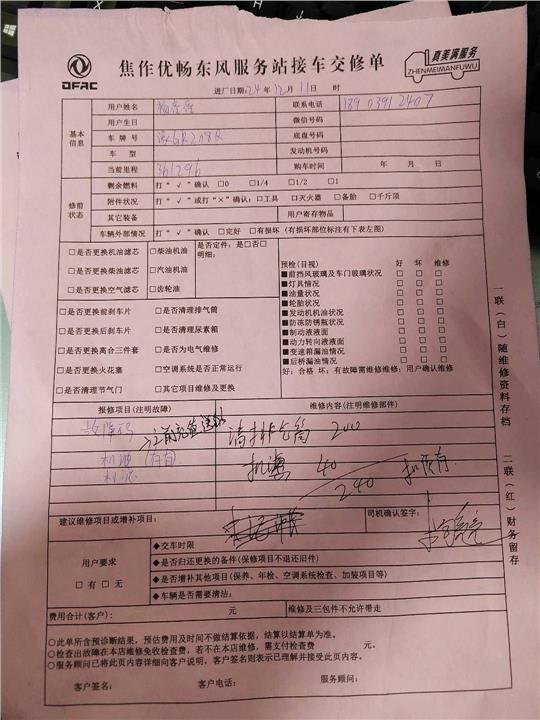 DFAC
焦作优畅东风服务站接车交修单
真美满服务
ZHENMEIMANFUWU
进厂日期:24年12月11日 时
基本信息
用户姓名
联系电话 18903912407
用户生日 微信号码
车牌号 底盘号码
车型 发动机号码
当前里程 361296 购车时间 年 月 日
修前状态
剩余燃料 打“√”确认 □0 □1/4 □1/2 □1
附件状况 打“√”或打“×”确认:□工具 □灭火器 □备胎 □千斤顶
其它装备 用户寄存物品
车辆外部情况 打“√”确认 □完好 □有损坏(有损坏部位标注有下表左图)
□是否更换机油滤芯 □柴油机油
□是否更换柴油滤芯 □汽油机油
□是否更换空气滤芯 □齿轮油
是否定件:是□否□
明细:
□是否更换前刹车片 □是否清理排气筒
□是否更换后刹车片 □是否清理尿素箱
□是否更换离合三件套 □是否为电气维修
□是否更换火花塞 □空调系统是否正常运行
□是否清理节气门 □其它项目维修及更换
预检(目视) 好 坏 维修
■前挡风玻璃及车门玻璃状况 □ □ □
■灯具情况 □ □ □
■油量状况 □ □ □
■轮胎状况 □ □ □
■发动机机油状况 □ □ □
■防冻防锈瓶状况 □ □ □
■制动液液面 □ □ □
■动力转向液液面 □ □ □
■变速箱漏油情况 □ □ □
■后桥漏油情况 □ □ □
好:合格 坏:有故障需维修维修:用户确认维修
报修项目(注明故障) 维修内容(注明维修部件)
故障码
清排气筒 200
机油(自
机滤 40
机滤
240
建议维修项目或增补项目:
司机确认签字:
用户要求
□有 □无
◆交车时限
◆是否归还更换的备件(保修项目不退还旧件)
◆是否增补其他项目(保养、年检、空调系统检查、加装项目等)
◆车辆是否需要清洁:
费用合计(客户): 元 维修及三包件不允许带走
○此单所含预诊断结果,预估费用及时间不做结算依据,结算以结算单为准。
○检查出故障在本店维修免收检查费,若不在本店维修,需支付检查费 元。
○服务顾问已将此页内容详细向客户说明,客户签名则表示已理解并接受此页内容。
客户签名: 客户电话: 服务顾问:
一联(白)随维修资料存档
二联(红)财务留存